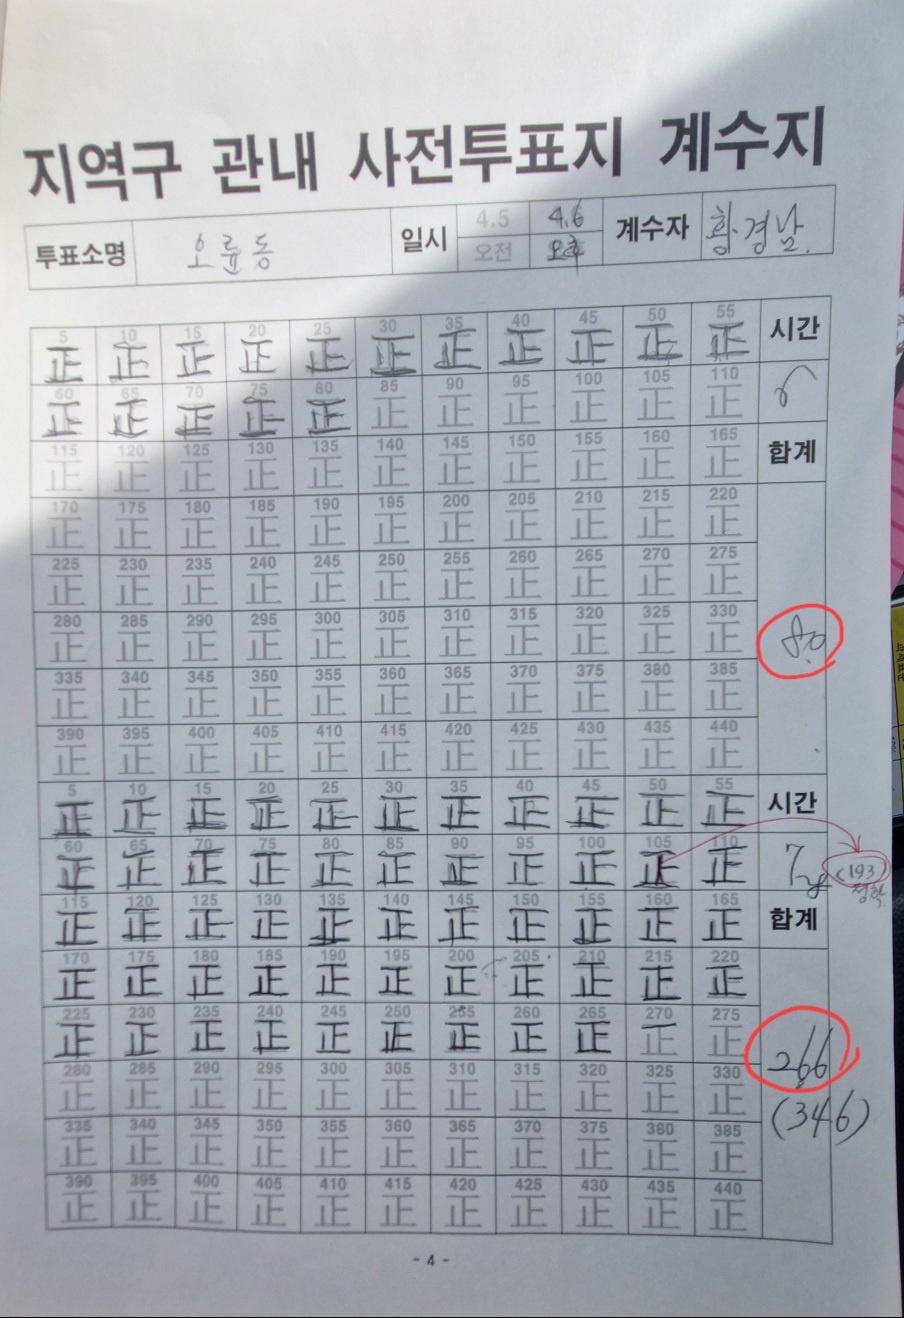 지역구 관내 사전투표지 계수지
투표소명 오륜동 일시 4.5 4.6 오전 오후 계수자 황경남
5 10 15 20 25 30 35 40 45 50 55 시간
正 正 正 正 正 正 正 正 正 正 正
60 65 70 75 80 85 90 95 100 105 110 6
正 正 正 正 正 正 正 正 正 正 正
115 120 125 130 135 140 145 150 155 160 165 합계
正 正 正 正 正 正 正 正 正 正 正
170 175 180 185 190 195 200 205 210 215 220
正 正 正 正 正 正 正 正 正 正 正
225 230 235 240 245 250 255 260 265 270 275
正 正 正 正 正 正 正 正 正 正 正
280 285 290 295 300 305 310 315 320 325 330
正 正 正 正 正 正 正 正 正 正 正 80
335 340 345 350 355 360 365 370 375 380 385
正 正 正 正 正 正 正 正 正 正 正
390 395 400 405 410 415 420 425 430 435 440
正 正 正 正 正 正 正 正 正 正 正
5 10 15 20 25 30 35 40 45 50 55 시간
正 正 正 正 正 正 正 正 正 正 正
60 65 70 75 80 85 90 95 100 105 110 7 (193)
正 正 正 正 正 正 正 正 正 正 正
115 120 125 130 135 140 145 150 155 160 165 합계
正 正 正 正 正 正 正 正 正 正 正
170 175 180 185 190 195 200 205 210 215 220
正 正 正 正 正 正 正 正 正 正 正
225 230 235 240 245 250 255 260 265 270 275
正 正 正 正 正 正 正 正 正 正 正 266
280 285 290 295 300 305 310 315 320 325 330
正 正 正 正 正 正 正 正 正 正 正 (346)
335 340 345 350 355 360 365 370 375 380 385
正 正 正 正 正 正 正 正 正 正 正
390 395 400 405 410 415 420 425 430 435 440
正 正 正 正 正 正 正 正 正 正 正
- 4 -